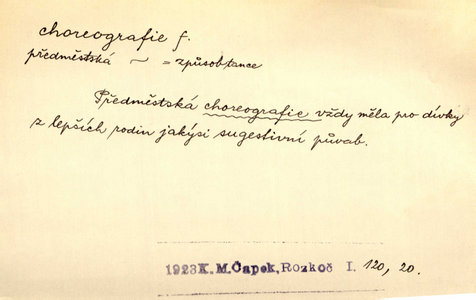 choreografie f.
předměstská ~ = způsob tance
Předměstská choreografie vždy měla pro dívky
z lepších rodin jakýsi sugestivní půvab.
1923 K. M. Čapek, Rozkoč I. 120, 20.